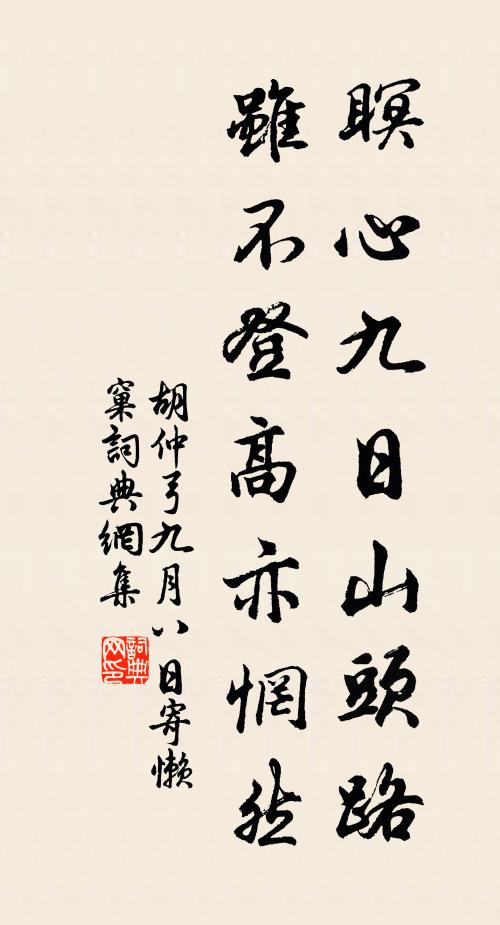 瞑心九日山頭路
雖不登高亦惘然
胡仲弓九月八日寄懶
窠詞典網集
詞典網印